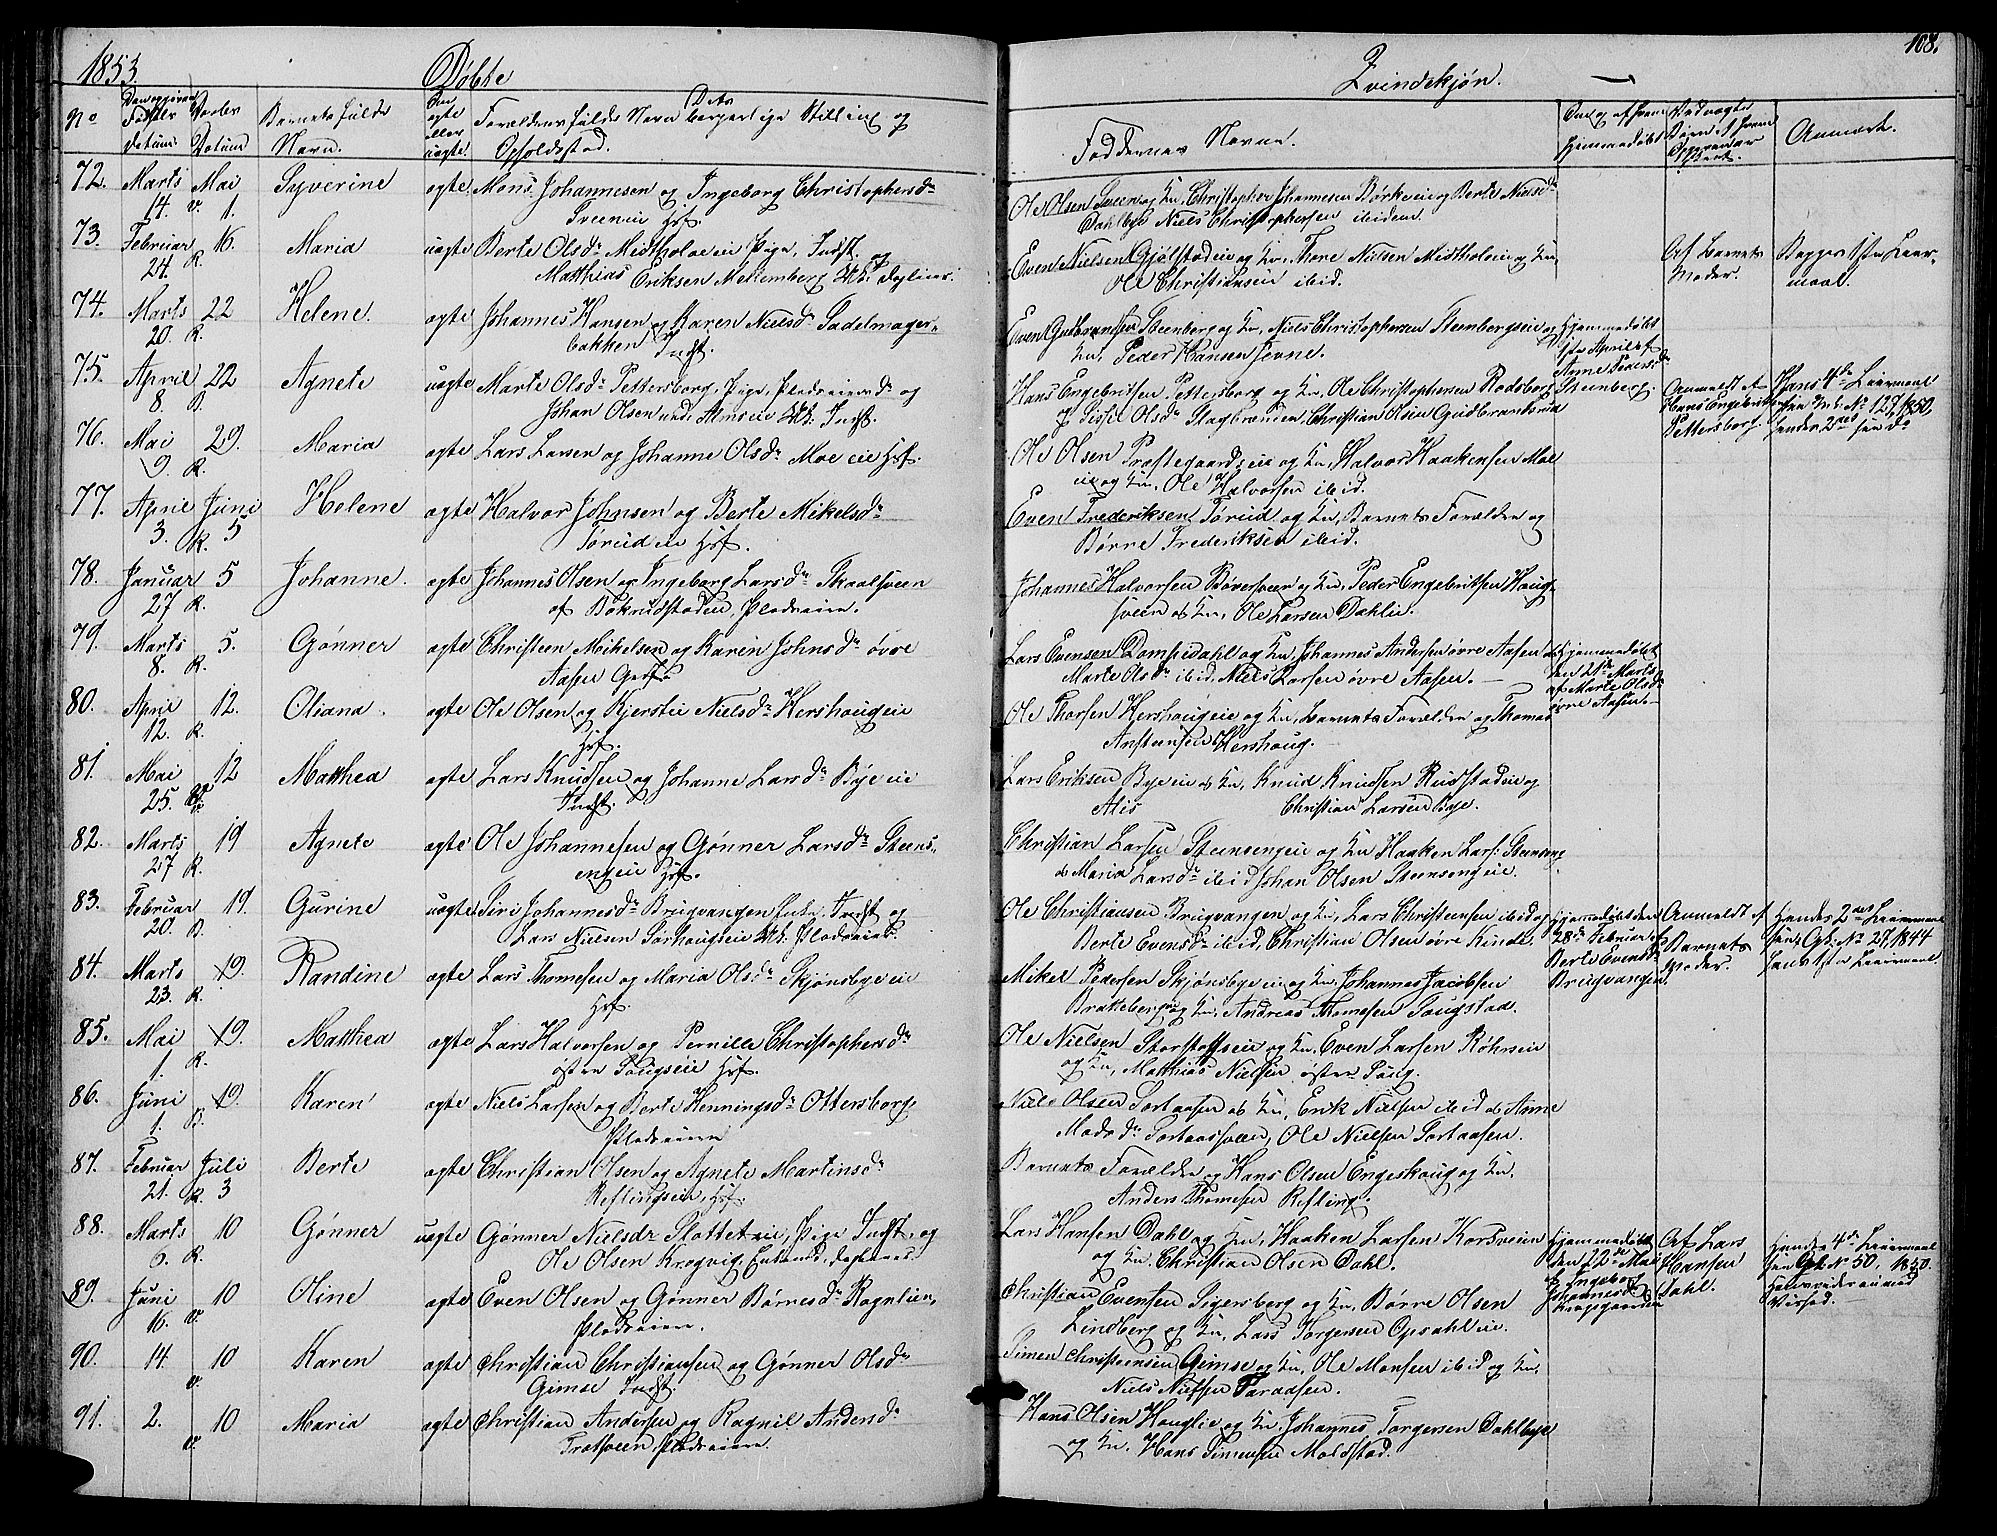 1853.
Døbte
Qvindekjøn.
108.
No
Den opgivne Fødsels Datum.
Daabs Datum
Barnets fulde Navn.
Om ægte eller uægte.
Forældrenes fulde Navn Dets borgerlige Stilling og Opholdssted.
Faddernes Navne.
Om og af hvem Hjemmedøbt
Ved uægte Børn af hvem Opgivelsen skeet.
Anmærk.
72. Marts 14. v. Mai 1. Syverine ægte Mons Johannesen og Ingeborg Christophersdr
Sveeneie Hsf.
Ole Olsen Sveen og Kn, Christopher Johannesen Børkeeie og Berte Nielsdr
Dahlbye Niels Christophersen ibidem.
73. Februar 24. R. 16. Maria uægte Berte Olsdr Midtholoeie Pige, Indst. og
Matthias Eriksen Mellemberg Dagleier.
Even Nielsen Gjølstadeie og Kn, Thore Nielsen Midtholoeie og Kn,
Ole Christiansen ibid.
Af Barnets
Moder.
Begges 1ste Leier-
maal.
74. Marts 20. R. 22 Helene. ægte Johannes Hansen og Karen Nielsdr Sadelmager-
bakken Indst.
Even Gudbrandsen Steenberg og Kn, Niels Christophersen Steenbergseie og
Kn, Peder Hansen Jevne.
Hjemmedøbt
1ste April af
Anne Pedersdr
Steenberg.
75. April 8. B. 22 Agnete uægte Marte Olsdr Pettersborg, Pige, Pladseiersdr og
Johan Olsen Almseie Indst.
Hans Engebritsen Pettersborg og Kn, Ole Christophersen Rodsborg
og Sissel Olsdr Slagbrænden, Christian Olsen Gudbrandsrud
Anmeldt af
Hans Engebritsen
Pettersborg.
Hans 4de Leiermaal
No 127, 1850,
hendes 2det
76. Mai 9. R. 29. Maria ægte Lars Larsen og Johanne Olsdr Moe eie Hsf.
Ole Olsen Præstegaardseie og Kn, Halvor Haakensen Moe
eie og Kn, Ole Halvorsen ibid.
77. April 3. R. Juni 5 Helene ægte Halvor Johnsen og Berte Mikelsdr
Torudeie Hsf.
Even Frederiksen Torud og Kn, Barnets Forældre og
Børre Frederiksen ibid.
78. Januar 27 R. 5 Johanne. ægte Johannes Olsen og Ingeborg Larsdr Skaalsveen
af Bøkrudstaden, Pladseier.
Johannes Halvorsen Bøversveen og Kn, Peder Engebritsen Haug-
sveen og Kn, Ole Larsen Dahlie.
79. Marts 8. R. 5. Gønner ægte Christen Mikelsen og Karen Johnsdr øvre
Aasen
Lars Evensen Dompedahl og Kn, Johannes Andersen øvre Aasen og
Marte Olsdr ibid. Niels Larsen øvre Aasen.
Hjemmedøbt
den 21de Marts
af Marte Olsdr
øvre Aasen.
80. April 12. R. 12. Oliana. ægte Ole Olsen og Kjerstie Nielsdr Hershougeie
Hsf.
Ole Thorsen Hershougeie og Kn, Barnets Forældre og Thomas
Anstensen Hershoug.
81. Mai 25. 12 Matthea ægte Lars Knudsen og Johanne Larsdr Bye eie
Indst.
Lars Eriksen Bye eie og Kn, Knud Knudsen Rudstadeie og
Christian Larsen Bye.
82. Marts 27 R. 19 Agnete ægte Ole Johannesen og Gønner Larsdr Steens-
engeie Hsf.
Christian Larsen Steensengeie og Kn Haaken Larsen Steenseng
og Maria Larsdr ibid Johan Olsen Steensengeie.
83. Februar 20. B. 19. Gurine uægte Siri Johannesdr Brugvangen Indst og
Lars Nielsen Sørhaugseie Pladseier.
Ole Christiansen Brugvangen og Kn, Lars Christensen ibid og
Berte Evensdr ibid, Christian Olsen øvre Kinde.
Hjemmedøbt den
28de Februar af
Berte Evensdr
Brugvangen.
Anmeldt af
Barnets
Moder.
Hendes 2det Leiermaal
No 27, 1844
hans 1ste Leiermaal.
84. Marts 23. R. 19. Randine ægte Lars Thomesen og Maria Olsdr Skjønsbye eie
Hsf.
Mikel Pedersen Skjønsbye eie og Kn, Johannes Jacobsen
Brakeberg og Kn, Andreas Thomesen Sougstad.
85. Mai 1. R. 19. Matthea ægte Lars Halvorsen og Pernille Christophersdr
østre Sougseie Hsf.
Ole Nielsen Storstoffseie og Kn, Even Larsen Røhneeie
og Kn, Matthias Nielsen østre Soug.
86. Juni 1. B. 19. Karen ægte Niels Larsen og Berte Henningsdr Ottersborg
Pladseier
Niels Olsen Sortaasen og Kn, Erik Nielsen ibid og Anne
Madsdr Sortaassveen, Ole Nielsen Sortaasen.
87. Februar 21. R. Juli 3 Berte ægte Christian Olsen og Agnete Martinsdr
Reflingseie, Hsf.
Barnets Forældre og Hans Olsen Engeskoug og Kn.
Anders Thomesen Refling.
88. Marts 6. R. 10 Gønner uægte Gønner Nielsdr Slotteteie, Pige Indst, og
Ole Olsen Krogvig, Enkemd,
Lars Hansen Dahl og Kn, Haaken Larsen Korsveien
og Kn. Christian Olsen Dahl.
Hjemmedøbt
den 22de Mai
af Ingeborg
Johannesdr
Af Lars
Hansen
Dahl.
Hendes 4de Leiermaal
No 50, 1850.
89. Juni 16. v. 10 Oline ægte Even Olsen og Gønner Børresdr Ragnlien,
Pladseier.
Christian Evensen Sigersberg og Kn, Børre Olsen
Lindberg og Kn, Lars Torgersen Opsahleie.
90. 14. v. 10 Karen ægte Christian Christiansen og Gønner Olsdr
Gimse Indst.
Simen Christensen Gimse og Kn, Ole Monsen ibid og Kn,
Niels Nielsen Faraasen.
91. 2. v. 10 Maria ægte Christian Andersen og Ragnil Andersdr
Pladseier.
Hans Olsen Houglie og Kn Johannes Torgersen Dahlbye
og Kn. Hans Simensen Moldstad.